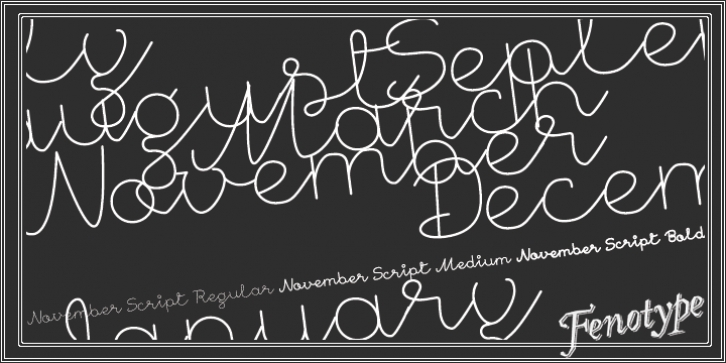 ly Septe
ugust March
November
Decem
November Script Regular November Script Medium November Script Bold
January
Fenotype